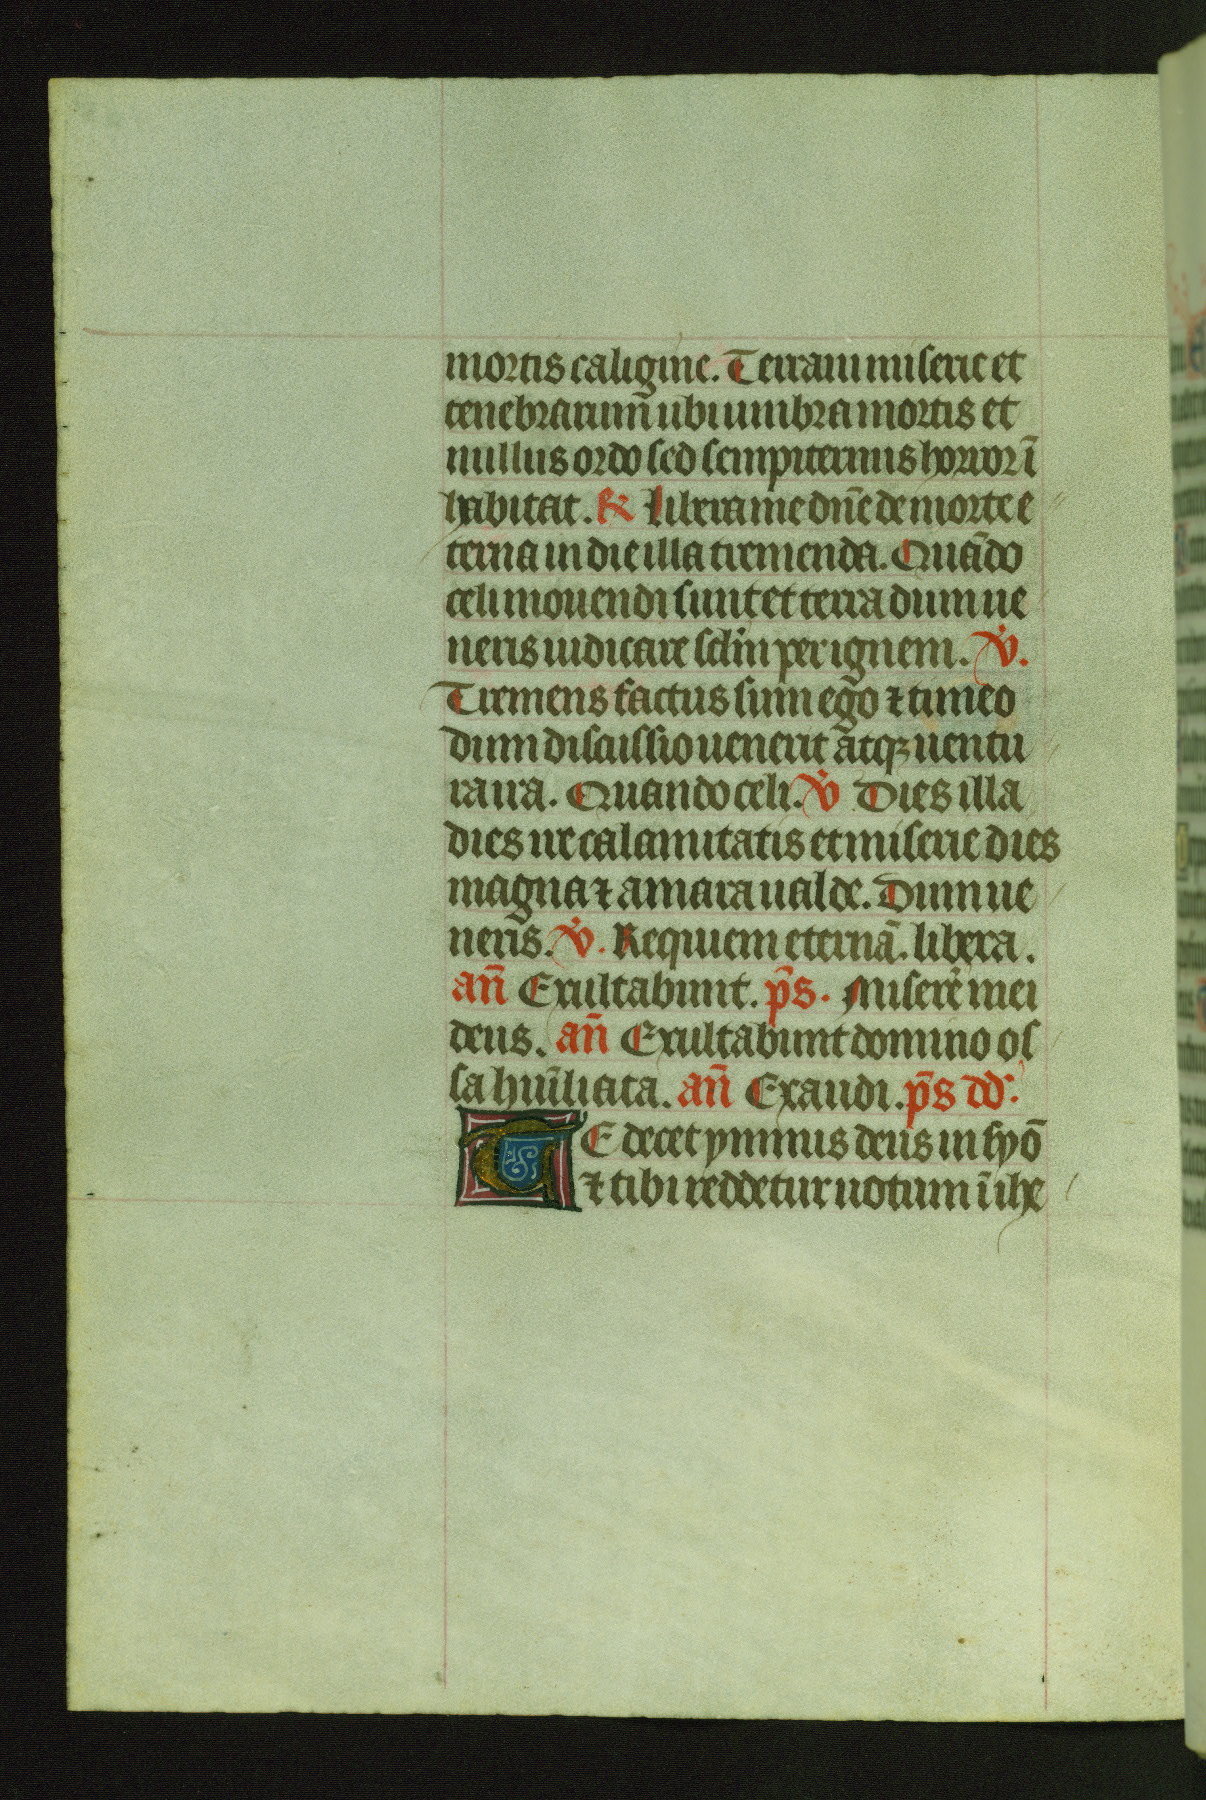 mortis caligine. Terram miserie et
tenebrarum̄ ubi umbra mortis et
nullus ordo sed sempiternus horror ī
habitat. R Libera me dn̄e de morte e
terna in die illa tremenda. Quādo
celi mouendi sunt et terra dum ue
neris iudicare sclm̄ per ignem. V.
Tremens factus sum ego ⁊ timeo
dum discussio uenerit ātqꝫ uentu
ra ira. Quando celi. V Dies illa
dies ire calamitatis et miserie dies
magna ⁊ amara ualde. Dum ue
neris. V. Requiem eternā. libera.
an̄ Exultabunt. p̄s. Miserē mei
deus. an̄ Exultabunt domino os
sa hum̄liata. an̄ Exaudi. p̄s dd:
TE decet ymnus deus in syō
⁊ tibi reddetur uotum ī ihe